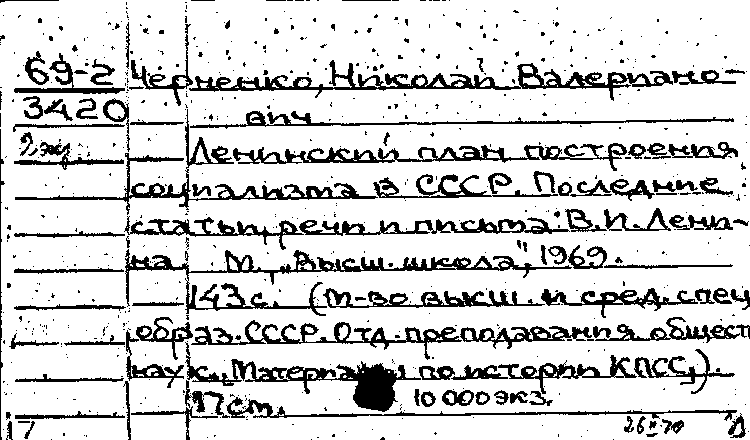 69-2 Черненко, Николай Валериано-
3420 вич
2 экз Ленинский план построения
социализма в СССР. Последние
статьи, речи и письма В.И. Лени-
на. М., „Высш. школа", 1969.
143 с. (М-во высш. и сред. спец
образ. СССР. Отд. преподавания обществ
наук. „Материалы по истории КПСС„).
17 см. 10 000 экз.
17 26 II 70